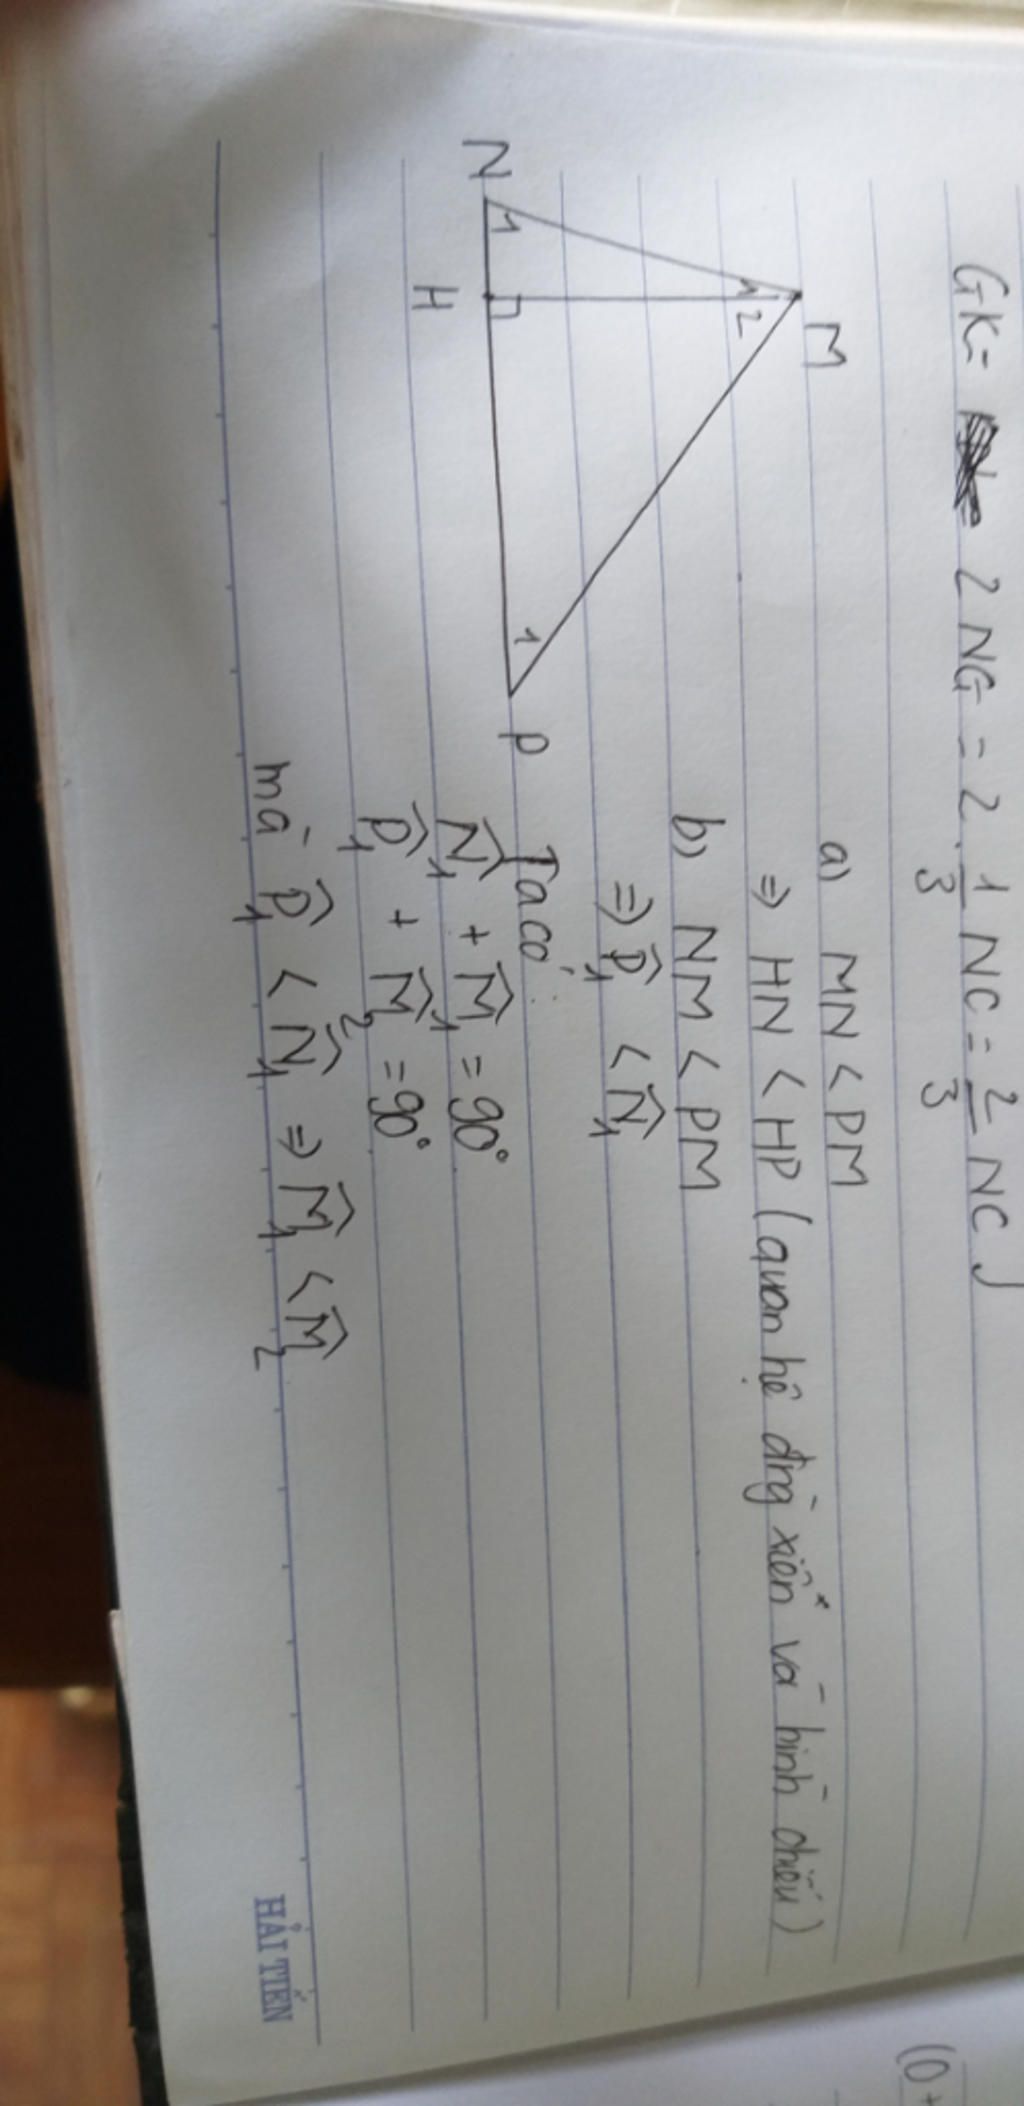 GK = 2 NG = 2 . 1/3 NC = 2/3 NC )
a) MN < PM
⇒ HN < HP (quan hệ đng xiên và hình chiếu)
b) NM < PM
⇒ P̂₁ < N̂₁
Ta có :
N̂₁ + M̂₁ = 90°
P̂₁ + M̂₂ = 90°
mà P̂₁ < N̂₁ ⇒ M̂₁ < M̂₂
M
1 2
N 1
H
1 P
HẢI TIẾN
(0+